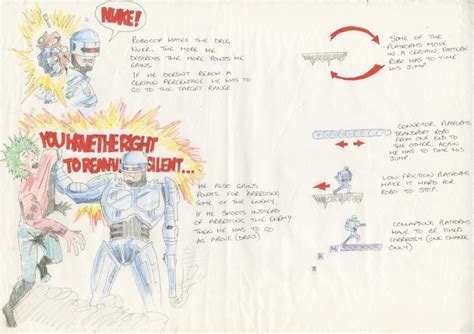 NUKE!
ROBOCOP HATES THE DRUG
NUKE. THE MORE HE
DESTROYS THE MORE POINTS HE
GAINS.
IF HE DOESN'T REACH A
CERTAIN PERCENTAGE HE HAS TO
GO TO THE TARGET RANGE
YOU HAVE THE RIGHT
TO REMAIN SILENT...
HE ALSO GAINS
POINTS FOR ARRESTING
SOME OF THE ENEMY.
IF HE SHOOTS INSTEAD
OF ARRESTING THE ENEMY
THEN HE HAS TO GO
AS ABOVE (DRUGS)
SOME OF THE
PLATFORMS MOVE
IN A CERTAIN PATTERN
ROBO HAS TO TIME
HIS JUMP.
CONVEYOR PLATFORMS
TRANSPORT ROBO
FROM ONE END TO
THE OTHER. AGAIN
HE HAS TO TIME HIS
JUMP
LOW FRICTION PLATFORMS
MAKE IT HARD FOR
ROBO TO STOP.
COLLAPSING PLATFORMS
HAVE TO BE TIMED
CORRECTLY (ONE CHANCE
ONLY)